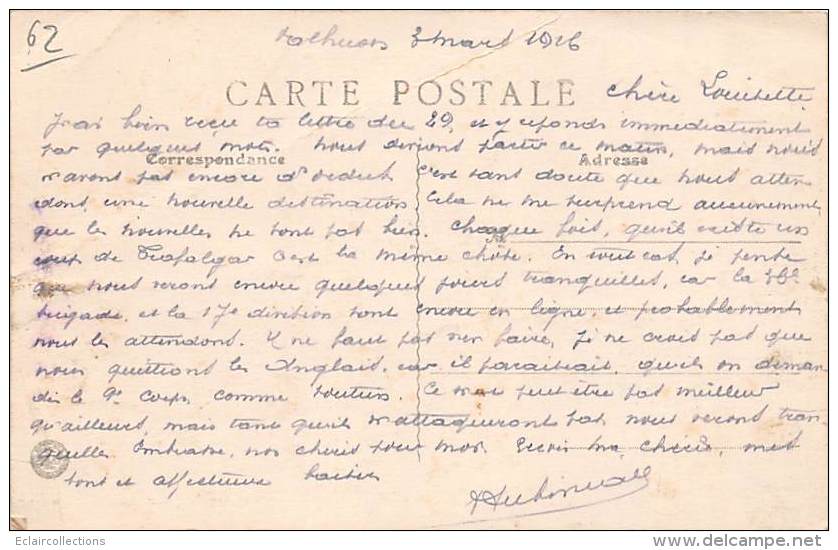 62
3 mars 1916
CARTE POSTALE
Chère Louisette
J'ai bien reçu ta lettre du 29, et y réponds immédiatement
par quelques mots. Nous devions partir ce matin, mais nous
Correspondance Adresse
n'avons pas encore d'ordres. C'est sans doute que nous atten
dons une nouvelle destination. Cela ne me surprend aucunement
que les nouvelles ne sont pas bien. Chaque fois, qu'il existe un
coup de Trafalgar c'est la même chose. En tout cas, je pense
que nous serons encore quelques jours tranquilles, car la
brigade, et la 17e division sont encore en ligne, et probablement
nous les attendons. Il ne faut pas s'en faire, Je ne crois pas que
nous quittions les Anglais, car il paraitrait, qu'ils ont deman
dés le 9e Corps comme soutien. Ce sera peut être pas meilleur
qu'ailleurs, mais tant qu'ils n'attaqueront pas nous serons tran
quilles. Embrasse, nos chéris pour moi. Reçois ma chérie, mes
et affectueux baisers
Eclaircollections
www.delcampe.net